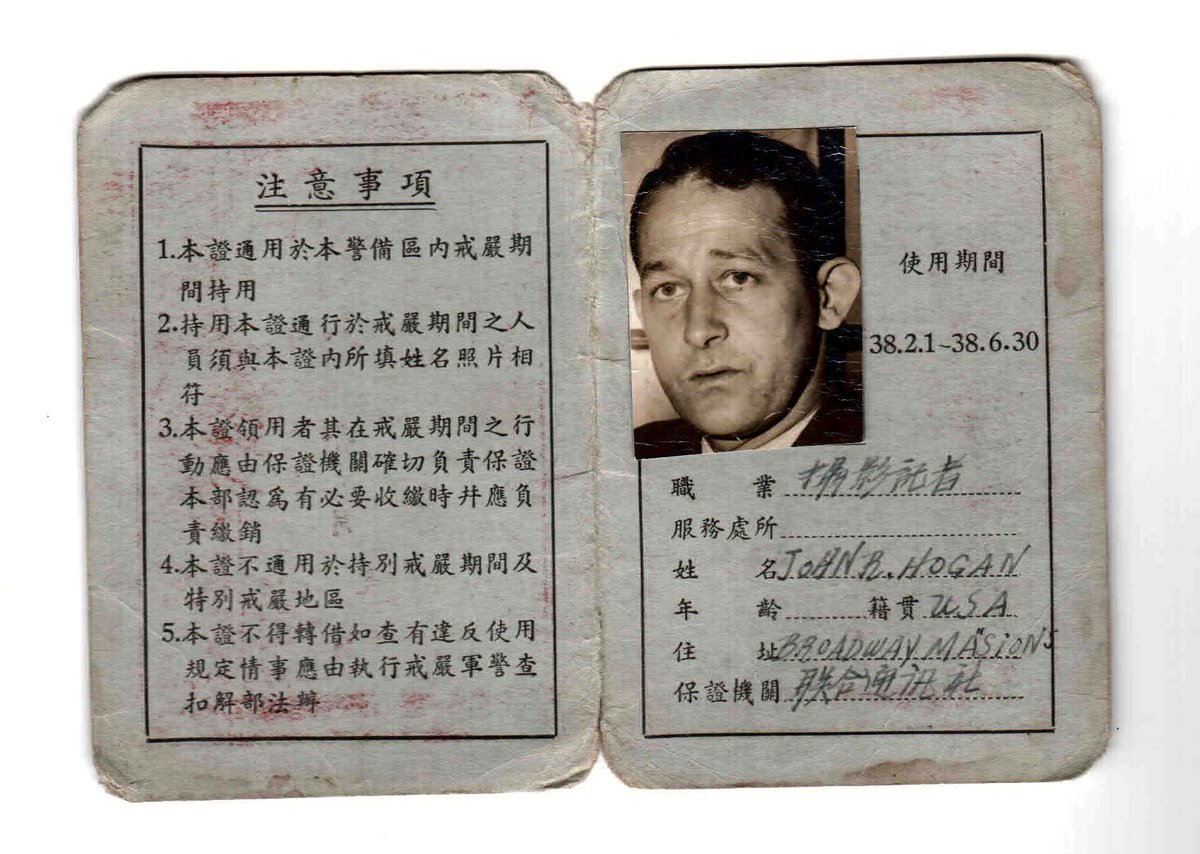 注意事項
1.本證通用於本警備區內戒嚴期
間持用
2.持用本證通行於戒嚴期間之人
員須與本證內所填姓名照片相
符
3.本證領用者其在戒嚴期間之行
動應由保證機關確切負責保證
本部認為有必要收繳時幷應負
責繳銷
4.本證不通用於特別戒嚴期間及
特別戒嚴地區
5.本證不得轉借如查有違反使用
規定情事應由執行戒嚴軍警查
扣解部法辦
使用期間
38.2.1~38.6.30
職業 攝影記者
服務處所
姓名 JOHN R. HOGAN
年齡 籍貫 USA
住址 BROADWAY MASIONS
保證機關 联合通訊社